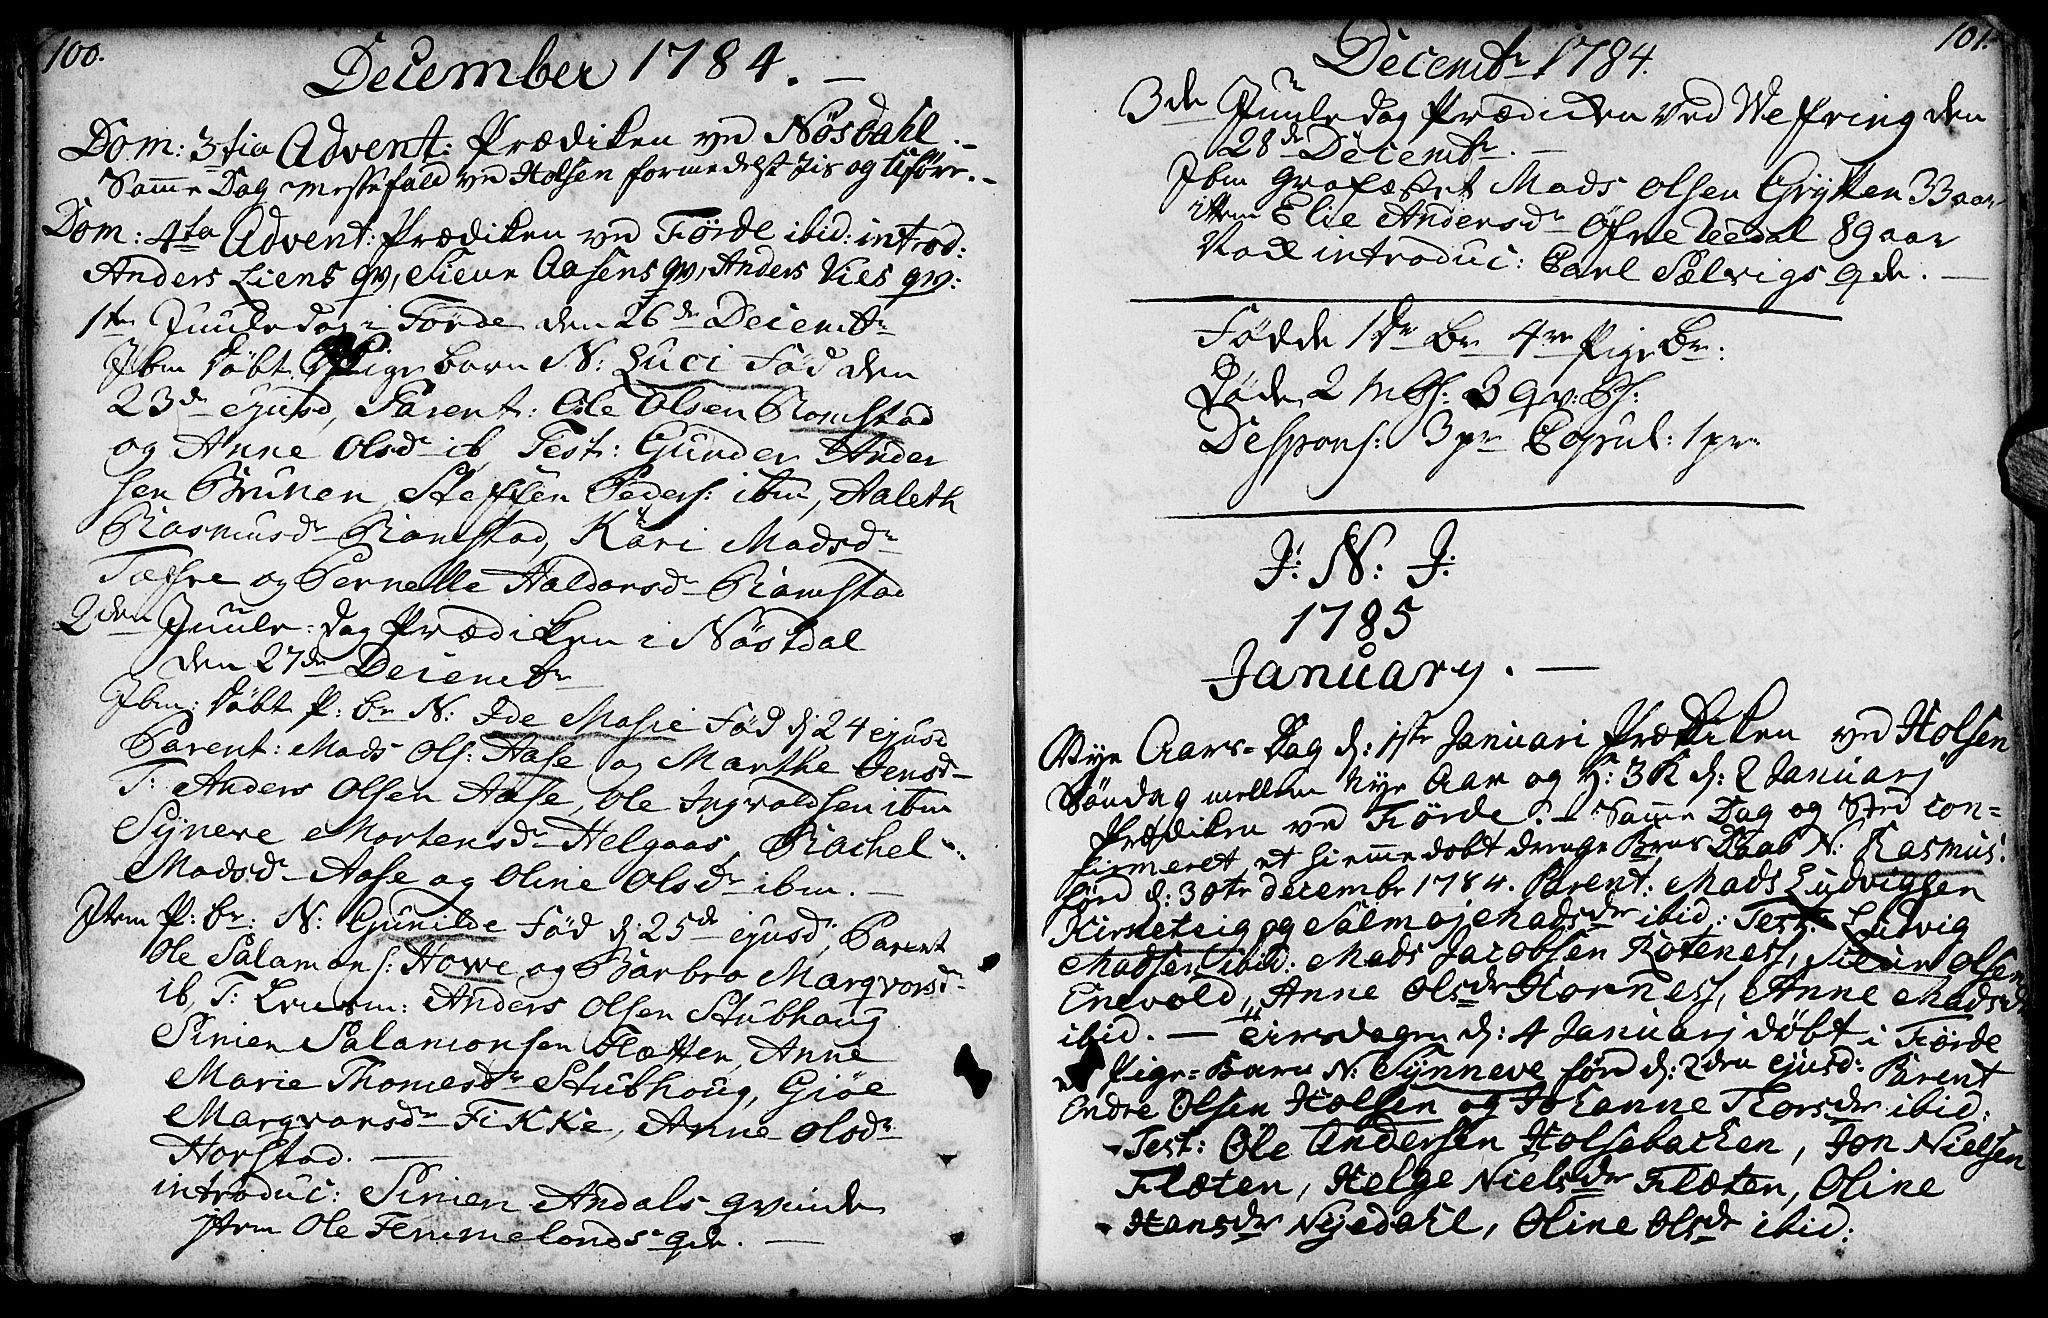 100.
December 1784. —
Dom: 3tia Advent: Prædiken ved Nösdahl. –
Samme Dag Messefald ved Holsen formedelst Iis og Uföre. –
Dom: 4ta Advent: Prædiken ved Förde ibid: introd:
Anders Liens qv, Sieur Aasens qv, Anders Vies qv:
1te Juule dag i Förde den 26de Decembr
Ibm döbt Pige barn N: Luci Föd den
23de ejusd, Parent: Ole Olsen Romstad
og Anne Olsdr ib Test: Gunder Ander
sen Brunen, Steffen Peders: ibm, Aaleth
Rasmusdr Ramstad, Kari Madsdr
Tæffre og Pernelle Haldorsdr Ramstad
2den Juule-Dag Prædiken i Nöstdal
den 27de Decembr
Ibm: döbt P: br N: Ide Masie Föd d: 24 ejusd
Parent: Mads Ols: Aase og Marthe Jensdr
T: Anders Olsen Aase, Ole Ingvoldsen ibm
Syneve Mortensdr Helgaas, Rachel
Madsdr Aase og Oline Olsdr ibm. —
Item P: br: N: Gunilde Föd d: 25de ejusd, Parent
Ole Salamons: Howe og Barbro Marqvorsdr
ib, T: Anders Olsen Stubhoug
Sinien Salamonsen Flætten, Anne
Marie Thomesdr Stubhoug, Giöe
Marqvarsdr Fikke, Anne Olsdr
Horstad. —
introduc: Sinien Andals qvinde
item Ole Femmelonds qde. —
101.
Decembr 1784.
3de Juule dag Prædiken ved Weffring den
28de Decembr. —
Ibm grafæstet Mads Olsen Grytten 33 aar
item Elie Andersdr Öfre Uedal 89 aar
Vod introduc: Carl Sælvigs qde. —
Födde 1 Dr Br 4re Pige Br:
Döde 2 M Ps: 3 Qv: Ps:
Despons: 3 pr Copul: 1 pr
J: N: J:
1785
January. —
Nye Aars-Dag d: 1ste Januari Prædiken ved Holsen
Söndag mellem Nye Aar og H: 3 K d: 2 Januarj
Prædiken ved Förde. – Samme Dag og Sted con=
firmeret et hiemmedobt drenge Barns Daab N: Rasmus:
förd d: 30te decembr 1784. Parent: Mads Ludvigsen
Kirketeig og Salmoj Madsdr ibid: Test: Ludvig
Madsen ibid: Mads Jacobsen Rotenes, Sieur Olsen
Enevold, Anne Olsdr Hornes, Anne Madsdr
ibid. — Tiirsdagen d: 4 Januarj döbt i Förde
et Pige-Barn N: Synneve förd d: 2den ejusd: Parent
Endre Olsen Holsen og Johanne Thorsdr ibid:
Test: Ole Andersen Holsebacken, Jon Nielsen
Flæten, Helge Nielsdr Flæten, Oline
Hansdr Nyedahl, Oline Olsdr ibid: